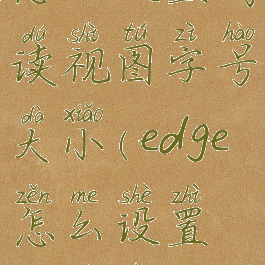 dú shì tú zì hào
读视图字号
dà xiǎo
大小(edge
zěn me shè zhì
怎么设置